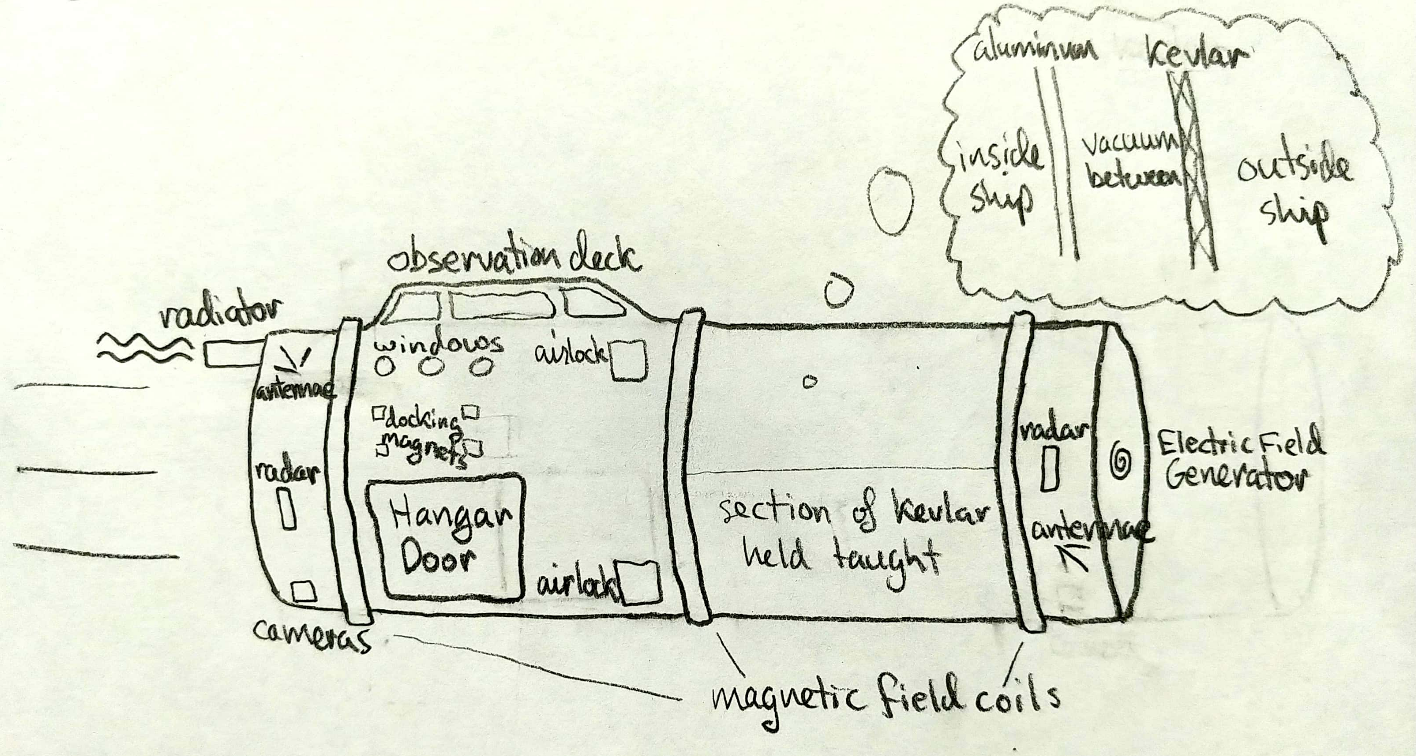 aluminum
kevlar
inside
ship
vacuum
between
outside
ship
observation deck
radiator
windows
airlock
antennae
docking
magnets
radar
Hangar
Door
airlock
cameras
section of kevlar
held taught
radar
antennae
Electric Field
Generator
magnetic field coils